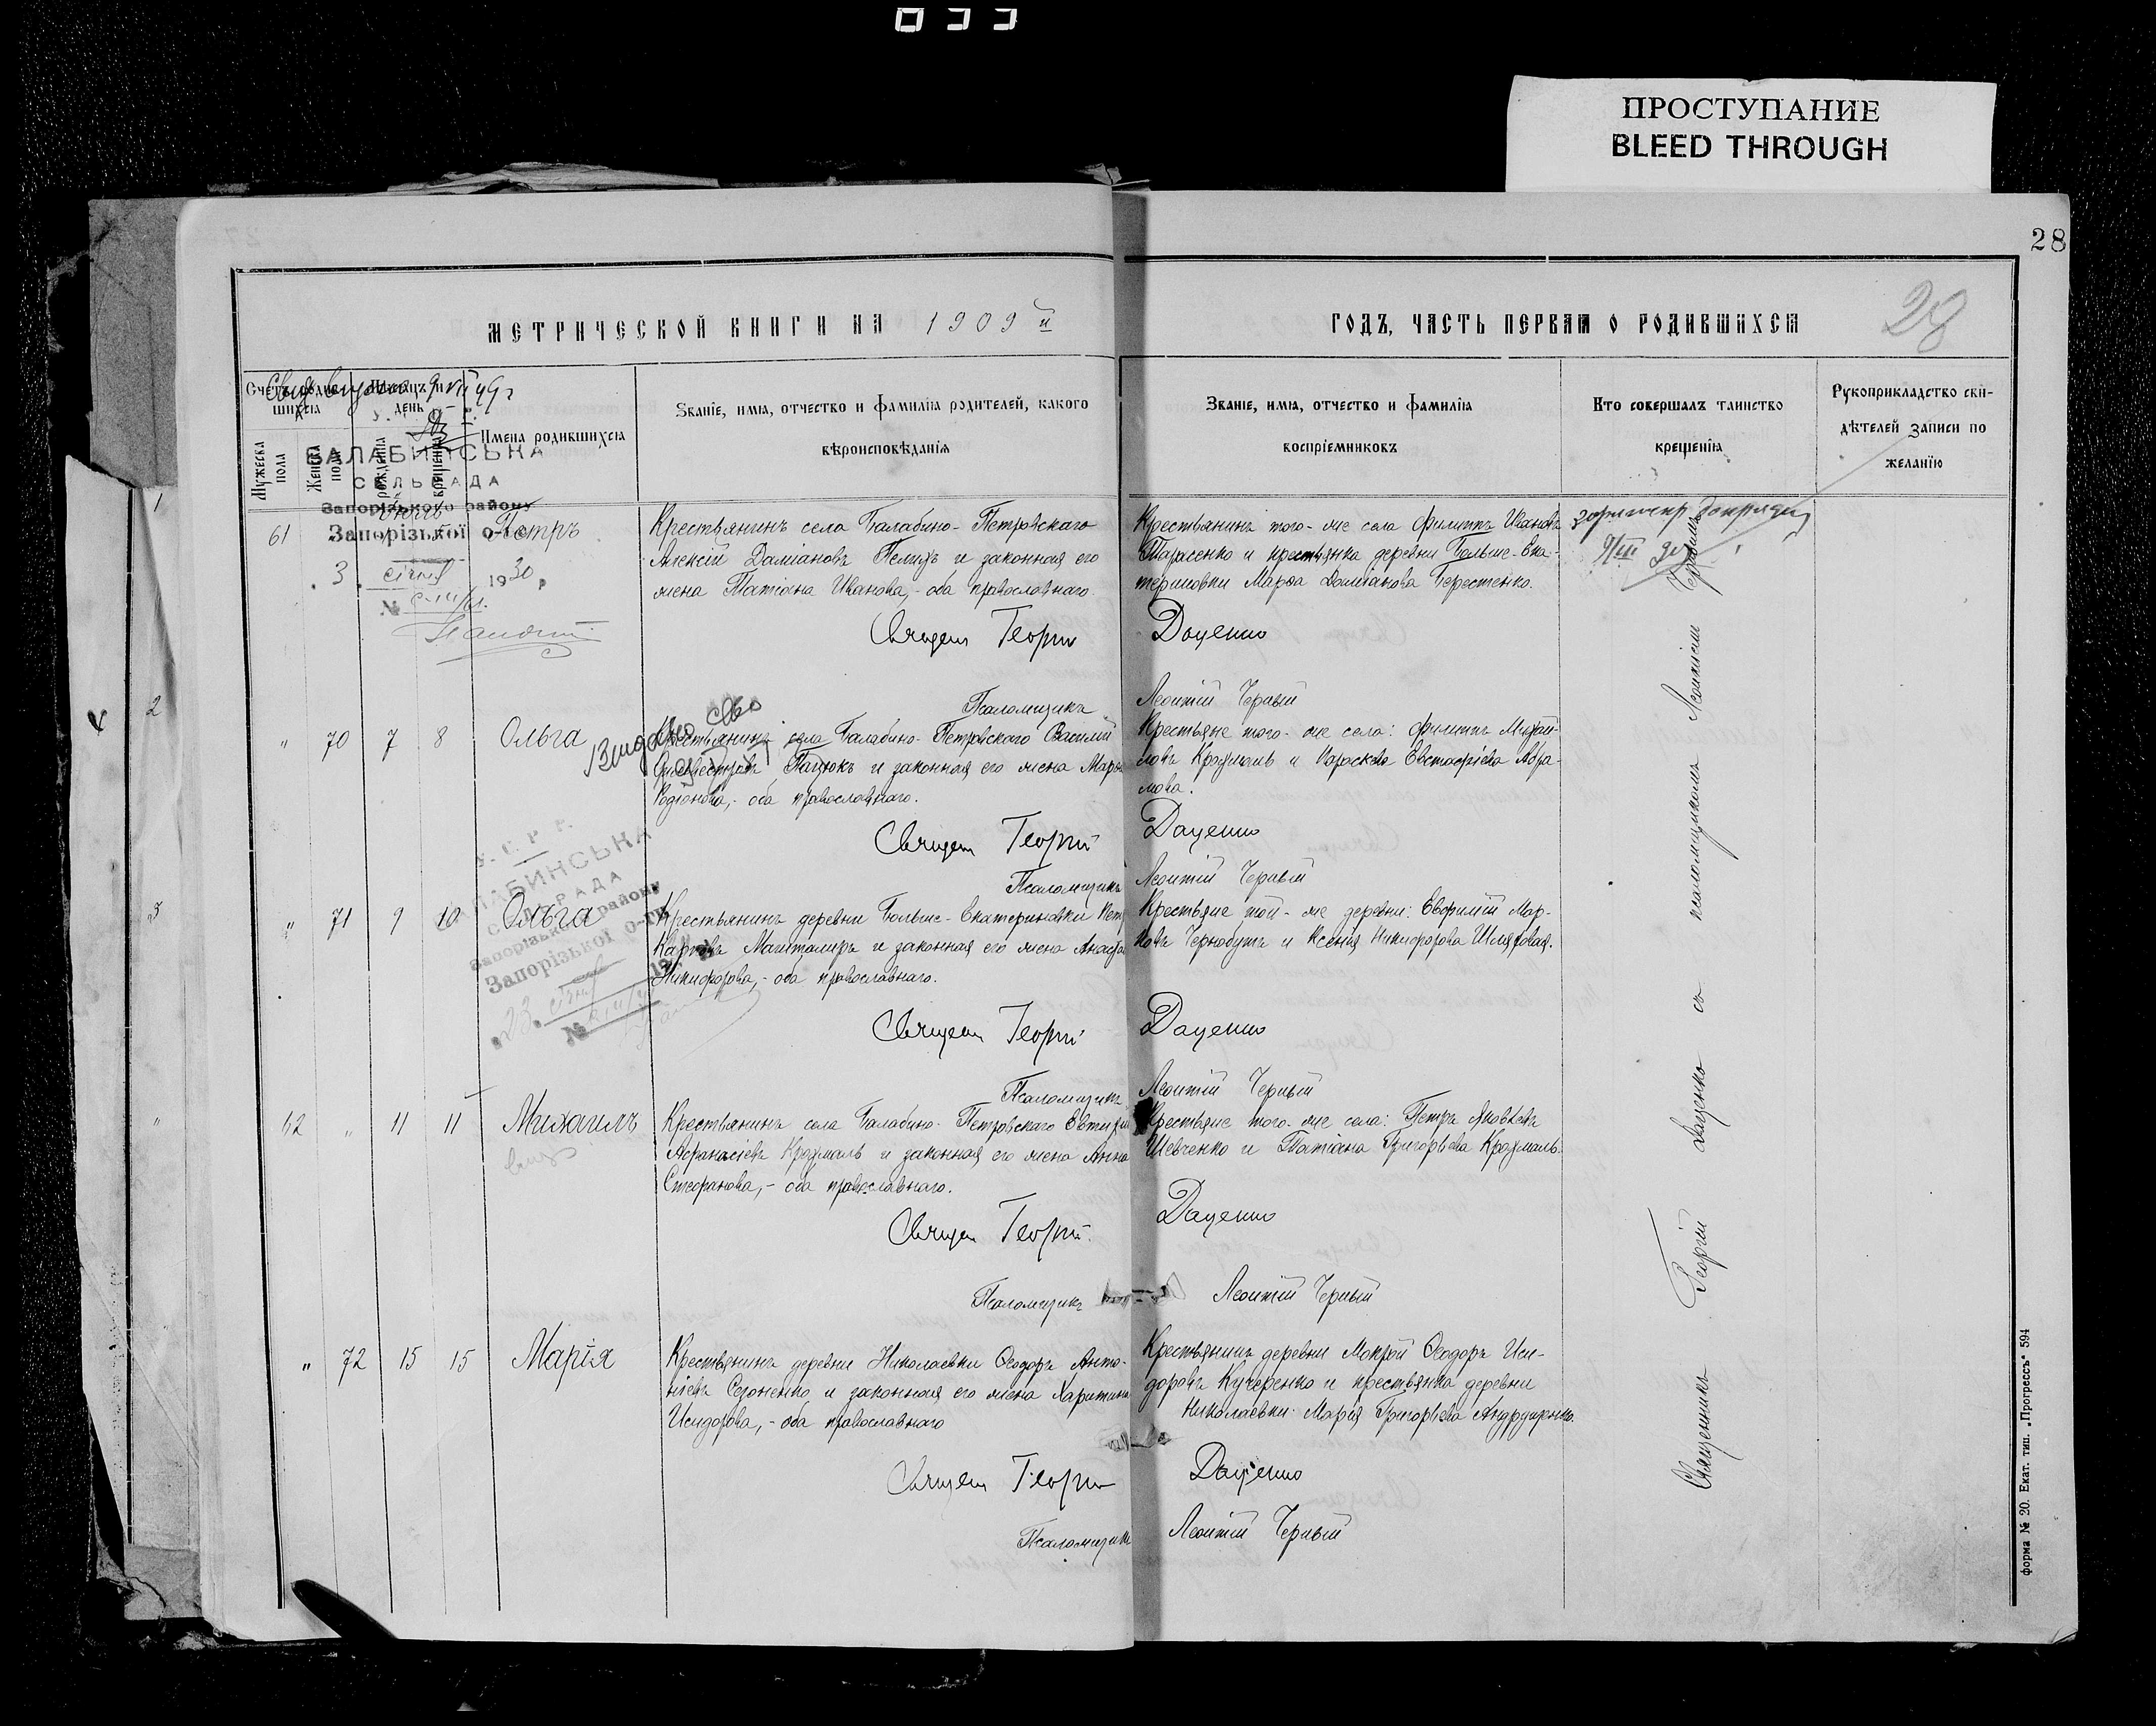 033
ПРОСТУПАНИЕ
BLEED THROUGH
28
28
МЕТРИЧЕСКОЙ КНИГИ НА 1909й
ГОДЪ, ЧАСТЬ ПЕРВАЯ О РОДИВШИХСЯ
Счетъ родив-
шихся
Мѣсяцъ и
день
Мужеска
пола
Женска
пола
рожденія
крещенія
Имена родившихся
Званіе, имя, отчество и фамилія родителей, какого
вѣроисповѣданія
Званіе, имя, отчество и фамилія
воспріемниковъ
Кто совершалъ таинство
крещенія
Рукоприкладство сви-
дѣтелей записи по
желанію
БАЛАБИНСЬКА
СЕЛЬРАДА
Запорізького району
Запорізької о-ги
3 січня 1930 р
№
1
61
Петръ
Крестьянинъ села Балабино-Петровскаго
Алексій Даміановъ и законная его
жена Татіана Иванова,- оба православнаго.
Крестьянинъ того-же села Филиппъ Ивановъ
Тарасенко и крестьянка деревни Больше-Ека-
териновки Марѳа Даміанова Берестенко.
Священ Георгій Даценко
Псаломщикъ Леонтій Черный
2
" 70 7 8 Ольга
Видано
Крестьянинъ села Балабино-Петровскаго Василій
Сильвестровъ Пацюкъ и законная его жена Марѳа
Родіонова,- оба православнаго.
Крестьяне того-же села: Филиппъ Михай-
ловъ Крохмаль и Параскева Евстафіева Абра-
мова.
Священ Георгій Даценко
Псаломщикъ Леонтій Черный
У. С. Р. Р.
БАЛАБИНСЬКА
СЕЛЬРАДА
Запорізького району
Запорізької о-ги
23 січня 19
№
3
" 71 9 10 Ольга
Крестьянинъ деревни Больше-Екатериновки Петръ
Карповъ Магиталиръ и законная его жена Анастас
Никифорова,- оба православнаго.
Крестьяне той-же деревни: Евфимій Мар-
ковъ Чернобукъ и Ксенія Никифорова Шляховая.
Священ Георгій Даценко
Псаломщикъ Леонтій Черный
62 " 11 11 Михаилъ
Крестьянинъ села Балабино-Петровскаго Евтихій
Аѳанасіевъ Крохмаль и законная его жена Анна
Стефанова,- оба православнаго.
Крестьяне того-же села: Петръ Яковлевъ
Шевченко и Татіана Григорьева Крохмаль.
Священ Георгій Даценко
Псаломщикъ Леонтій Черный
" 72 15 15 Марія
Крестьянинъ деревни Николаевки Ѳеодоръ Анто-
ніевъ Сезоненко и законная его жена Харитина
Исидорова,- оба православнаго
Крестьянинъ деревни Мокрой Ѳеодоръ Иси-
доровъ Кучеренко и крестьянка деревни
Николаевки Марія Григорьева Андрущенко.
Священ Георгій Даценко
Псаломщикъ Леонтій Черный
Священникъ Георгій Даценко съ псаломщикомъ Леонтіемъ Чернымъ
форма № 20. Екат. тип. „Прогрессъ“ 594